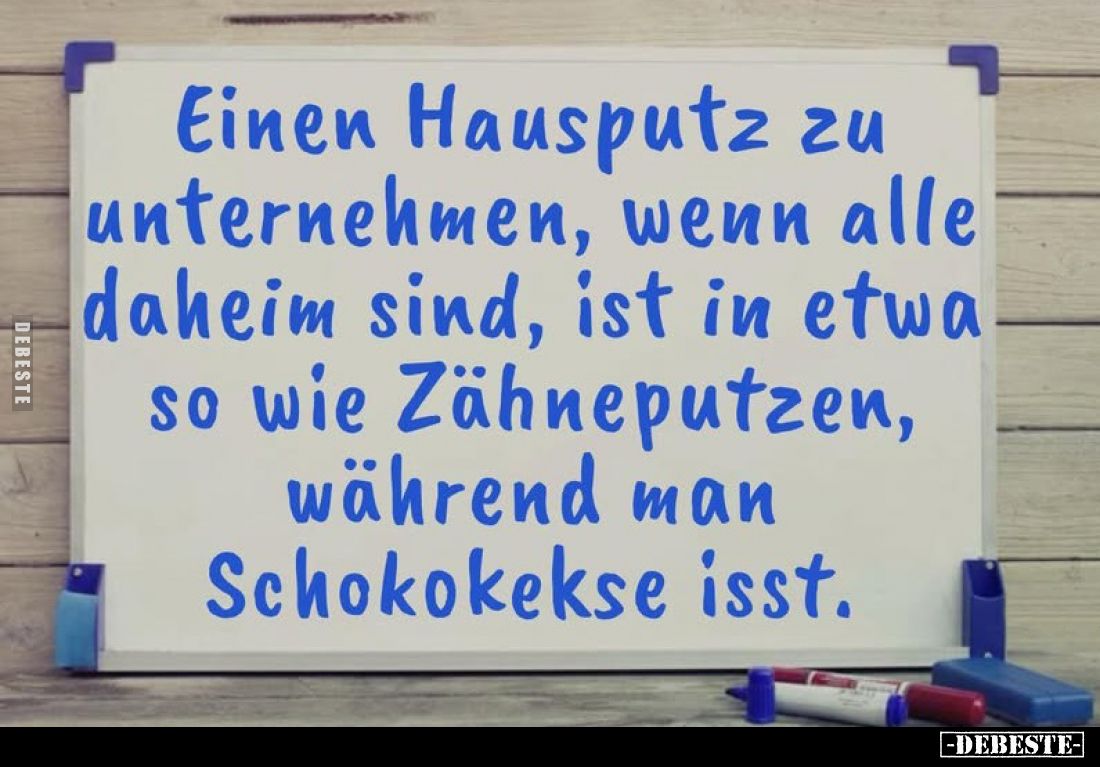 Einen Hausputz zu
unternehmen, wenn alle
daheim sind, ist in etwa
so wie Zähneputzen,
während man
Schokokekse isst.
DEBESTE
-DEBESTE-